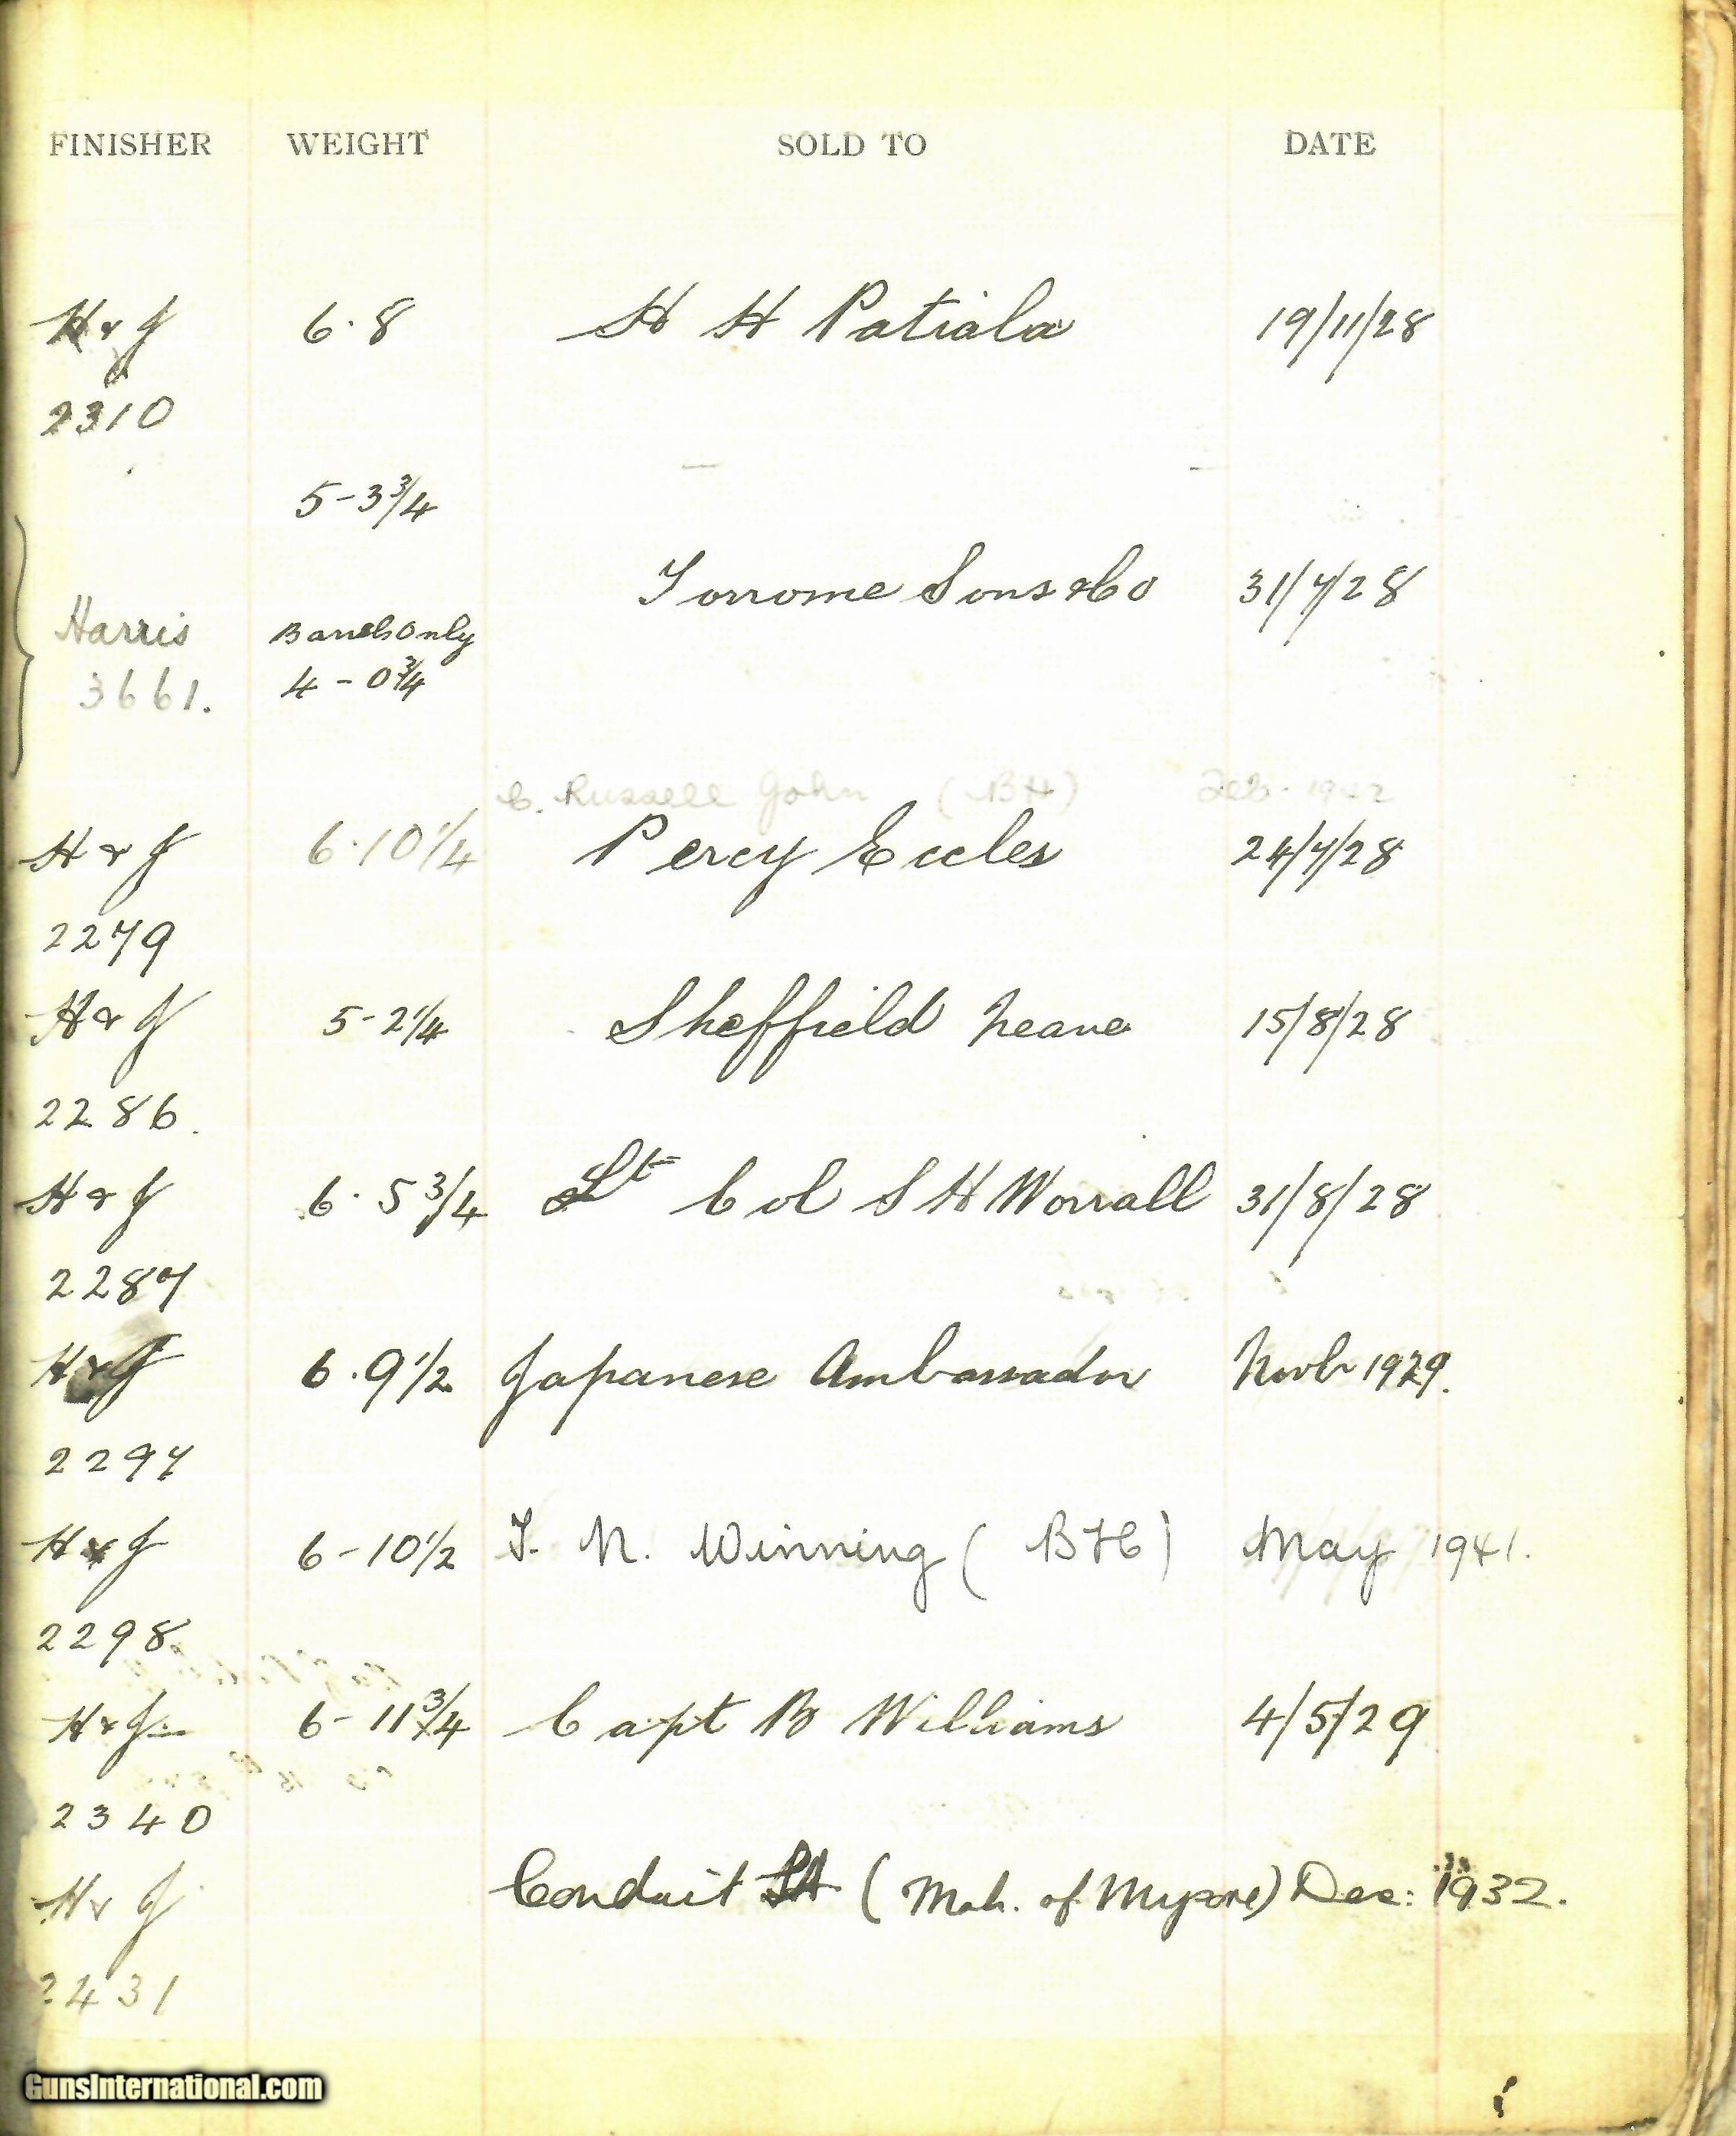 FINISHER WEIGHT SOLD TO DATE
H & J 6.8 H H Patiala 19/11/28
2310
5-3 3/4
Torrome Sons & Co 31/7/28
Harris Barrels Only
3661. 4-0 3/4
C. Russell John (BH) Feb. 1942
H & J 6.10 1/4 Percy Eccles 24/7/28
2279
H & J 5-2 1/4 Sheffield Neave 15/8/28
2286.
H & J 6.5 3/4 Lt Col S H Worrall 31/8/28
2287
H & J 6.9 1/2 Japanese Ambassador Novbr 1929.
2297
H & J 6-10 1/2 T. N. Winning (BH) May 1941.
2298
H & J 6-11 3/4 Capt B Williams 4/5/29
2340
H & J Conduit St (Mah. of Mysore) Dec: 1932.
2431
GunsInternational.com